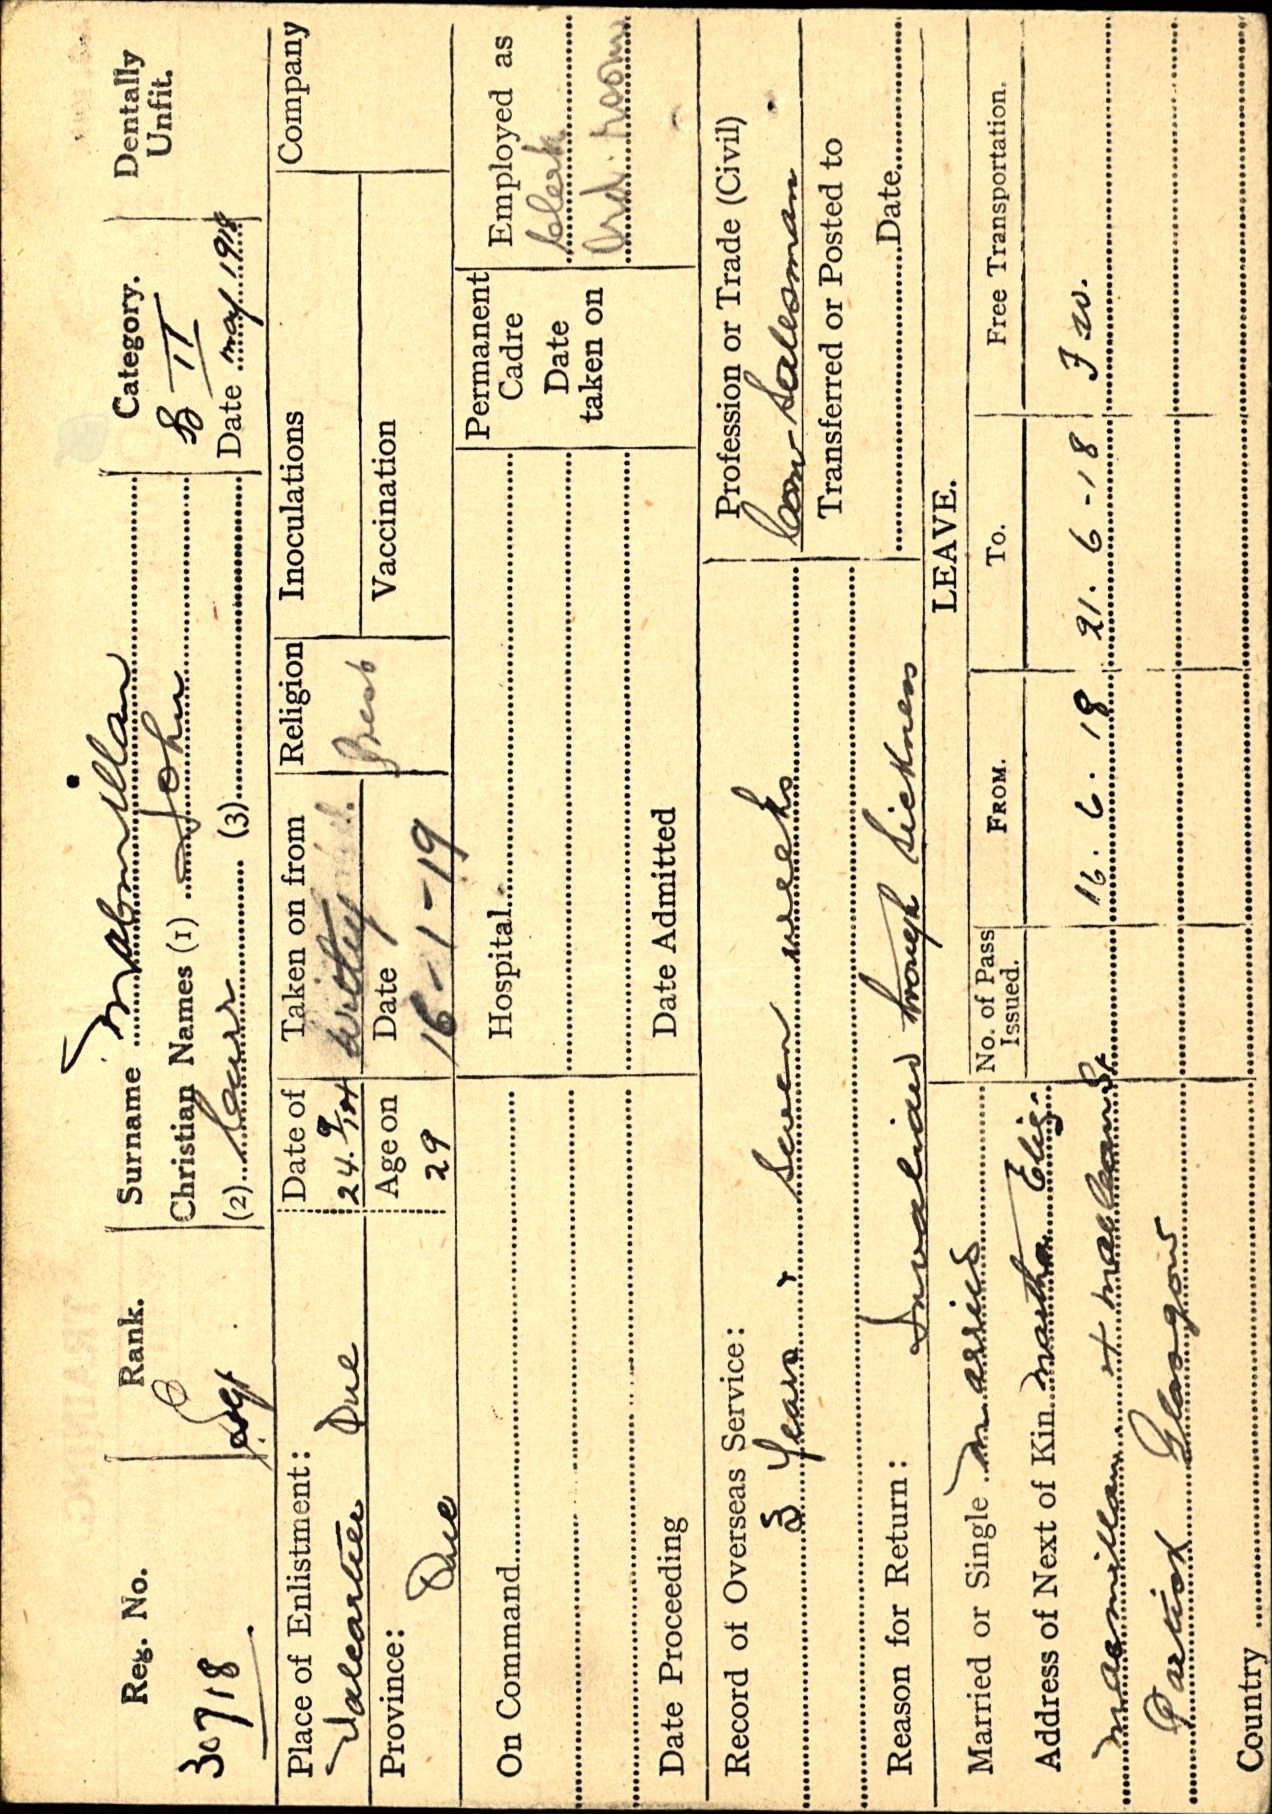 Reg. No. Rank. Surname Macmillan Category. Dentally Unfit.
30718 Sgt Christian Names (1) John B II
(2) Carr (3) Date May 1918
Place of Enlistment: Date of Taken on from Religion Inoculations Company
Valcartier Que 24.9.14 Witley Presb
Province: Age on Date Vaccination
Que 29 16-1-19
On Command Hospital Permanent Cadre Employed as
Date taken on Clerk
Ord. Room
Date Proceeding Date Admitted
Record of Overseas Service: Profession or Trade (Civil)
3 Years, Seven weeks Salesman
Transferred or Posted to
Reason for Return: Date
Invalided through Sickness
LEAVE.
Married or Single Married No. of Pass Issued. FROM. To. Free Transportation.
Address of Next of Kin Martha Eliz.
Macmillan St 16.6.18 21.6-18
Partick Glasgow
Country
TRAINING